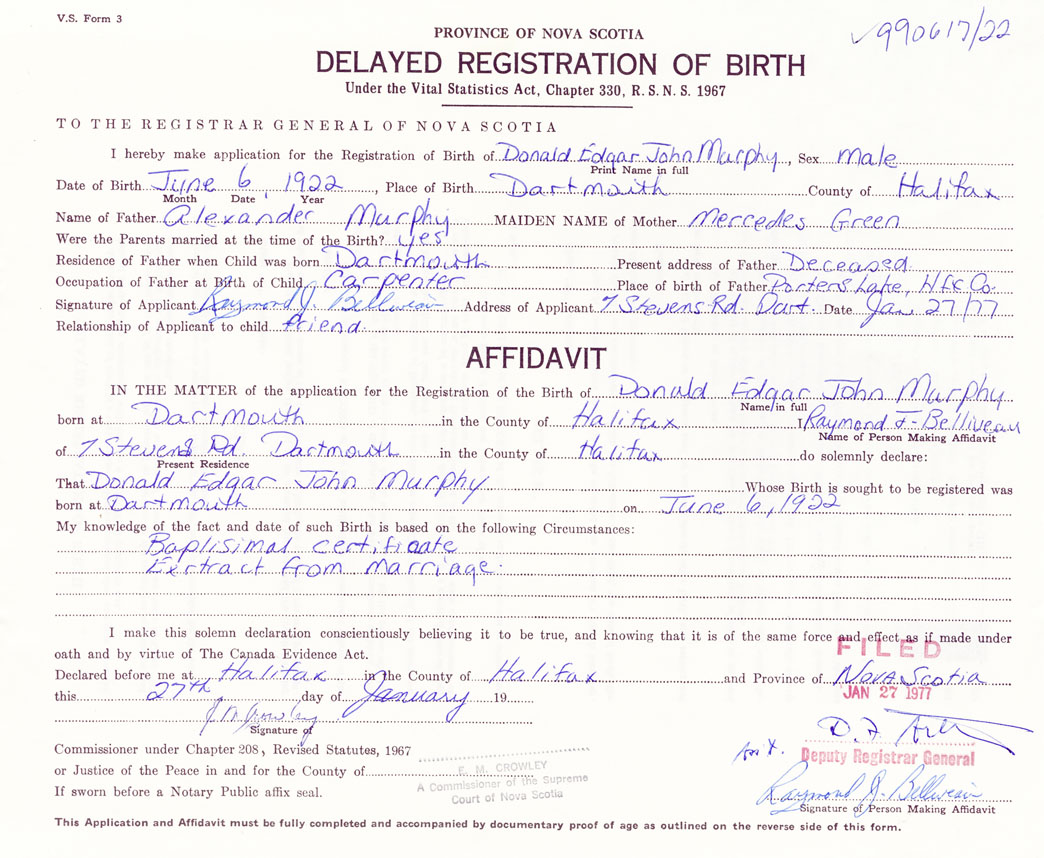 V.S. Form 3
990617/22
PROVINCE OF NOVA SCOTIA
DELAYED REGISTRATION OF BIRTH
Under the Vital Statistics Act, Chapter 330, R. S. N. S. 1967
TO THE REGISTRAR GENERAL OF NOVA SCOTIA
I hereby make application for the Registration of Birth of Donald Edgar John Murphy, Sex Male
Print Name in full
Date of Birth June 6, 1922, Place of Birth Dartmouth County of Halifax
Month Date Year
Name of Father Alexander Murphy MAIDEN NAME of Mother Mercedes Green
Were the Parents married at the time of the Birth? yes
Residence of Father when Child was born Dartmouth Present address of Father Deceased
Occupation of Father at Birth of Child Carpenter Place of birth of Father Porters Lake, Hfx Co.
Signature of Applicant Raymond J. Belliveau Address of Applicant 7 Stevens Rd. Dart. Date Jan 27/77
Relationship of Applicant to child friend
AFFIDAVIT
IN THE MATTER of the application for the Registration of the Birth of Donald Edgar John Murphy
Name in full
born at Dartmouth in the County of Halifax I Raymond J. Belliveau
Name of Person Making Affidavit
of 7 Stevens Rd. Dartmouth in the County of Halifax do solemnly declare:
Present Residence
That Donald Edgar John Murphy Whose Birth is sought to be registered was
born at Dartmouth on June 6, 1922
My knowledge of the fact and date of such Birth is based on the following Circumstances:
Baplisimal certificate
Exrtract from marriage.
I make this solemn declaration conscientiously believing it to be true, and knowing that it is of the same force and effect as if made under
oath and by virtue of The Canada Evidence Act.
FILED
Declared before me at Halifax in the County of Halifax and Province of Nova Scotia
JAN 27 1977
this 27th day of January 19
Signature of
Commissioner under Chapter 208, Revised Statutes, 1967
Deputy Registrar General
or Justice of the Peace in and for the County of
E. M. CROWLEY
A Commissioner of the Supreme
Court of Nova Scotia
If sworn before a Notary Public affix seal.
Raymond J. Belliveau
Signature of Person Making Affidavit
This Application and Affidavit must be fully completed and accompanied by documentary proof of age as outlined on the reverse side of this form.